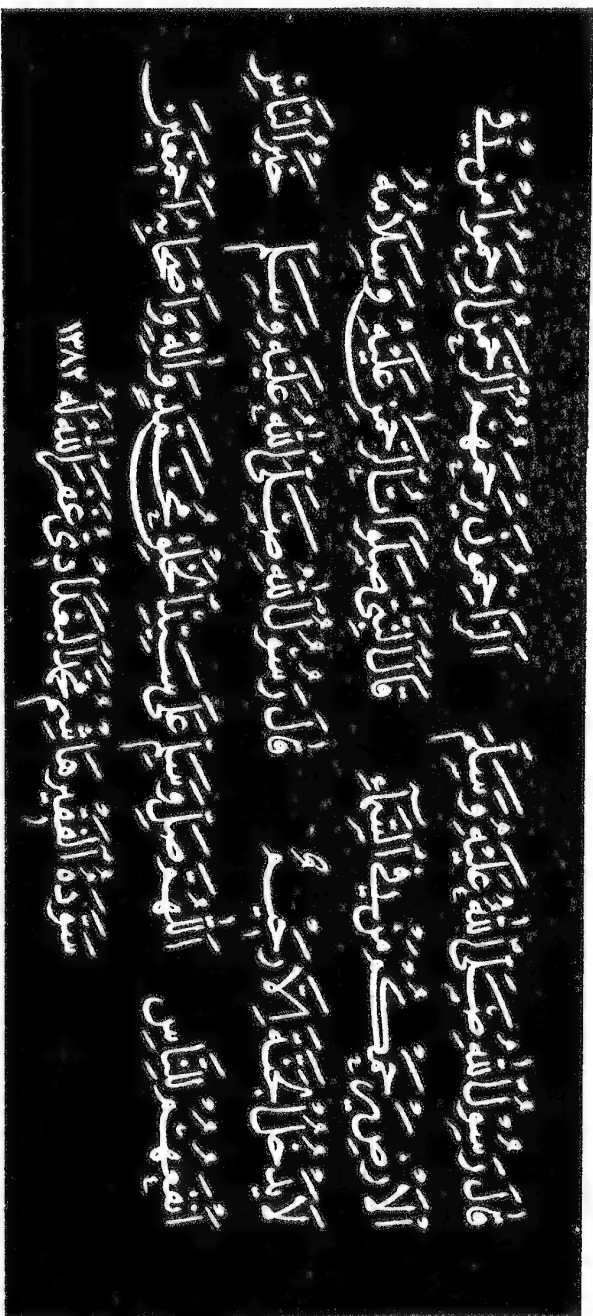 قال رسول الله صلى الله عليه وسلم الراحمون يرحمهم الرحمن ارحموا من في
الارض يرحمكم من في السماء قال النبي صلوات الرحمن عليه وسلامه
لا يدخل الجنة الا رحيم قال رسول الله صلى الله عليه وسلم خير الناس
انفعهم للناس اللهم صل وسلم على سيد الخلق محمد واله واصحابه اجمعين
سوده الفقير هاشم محمد البغدادي غفر الله له ١٣٨٢